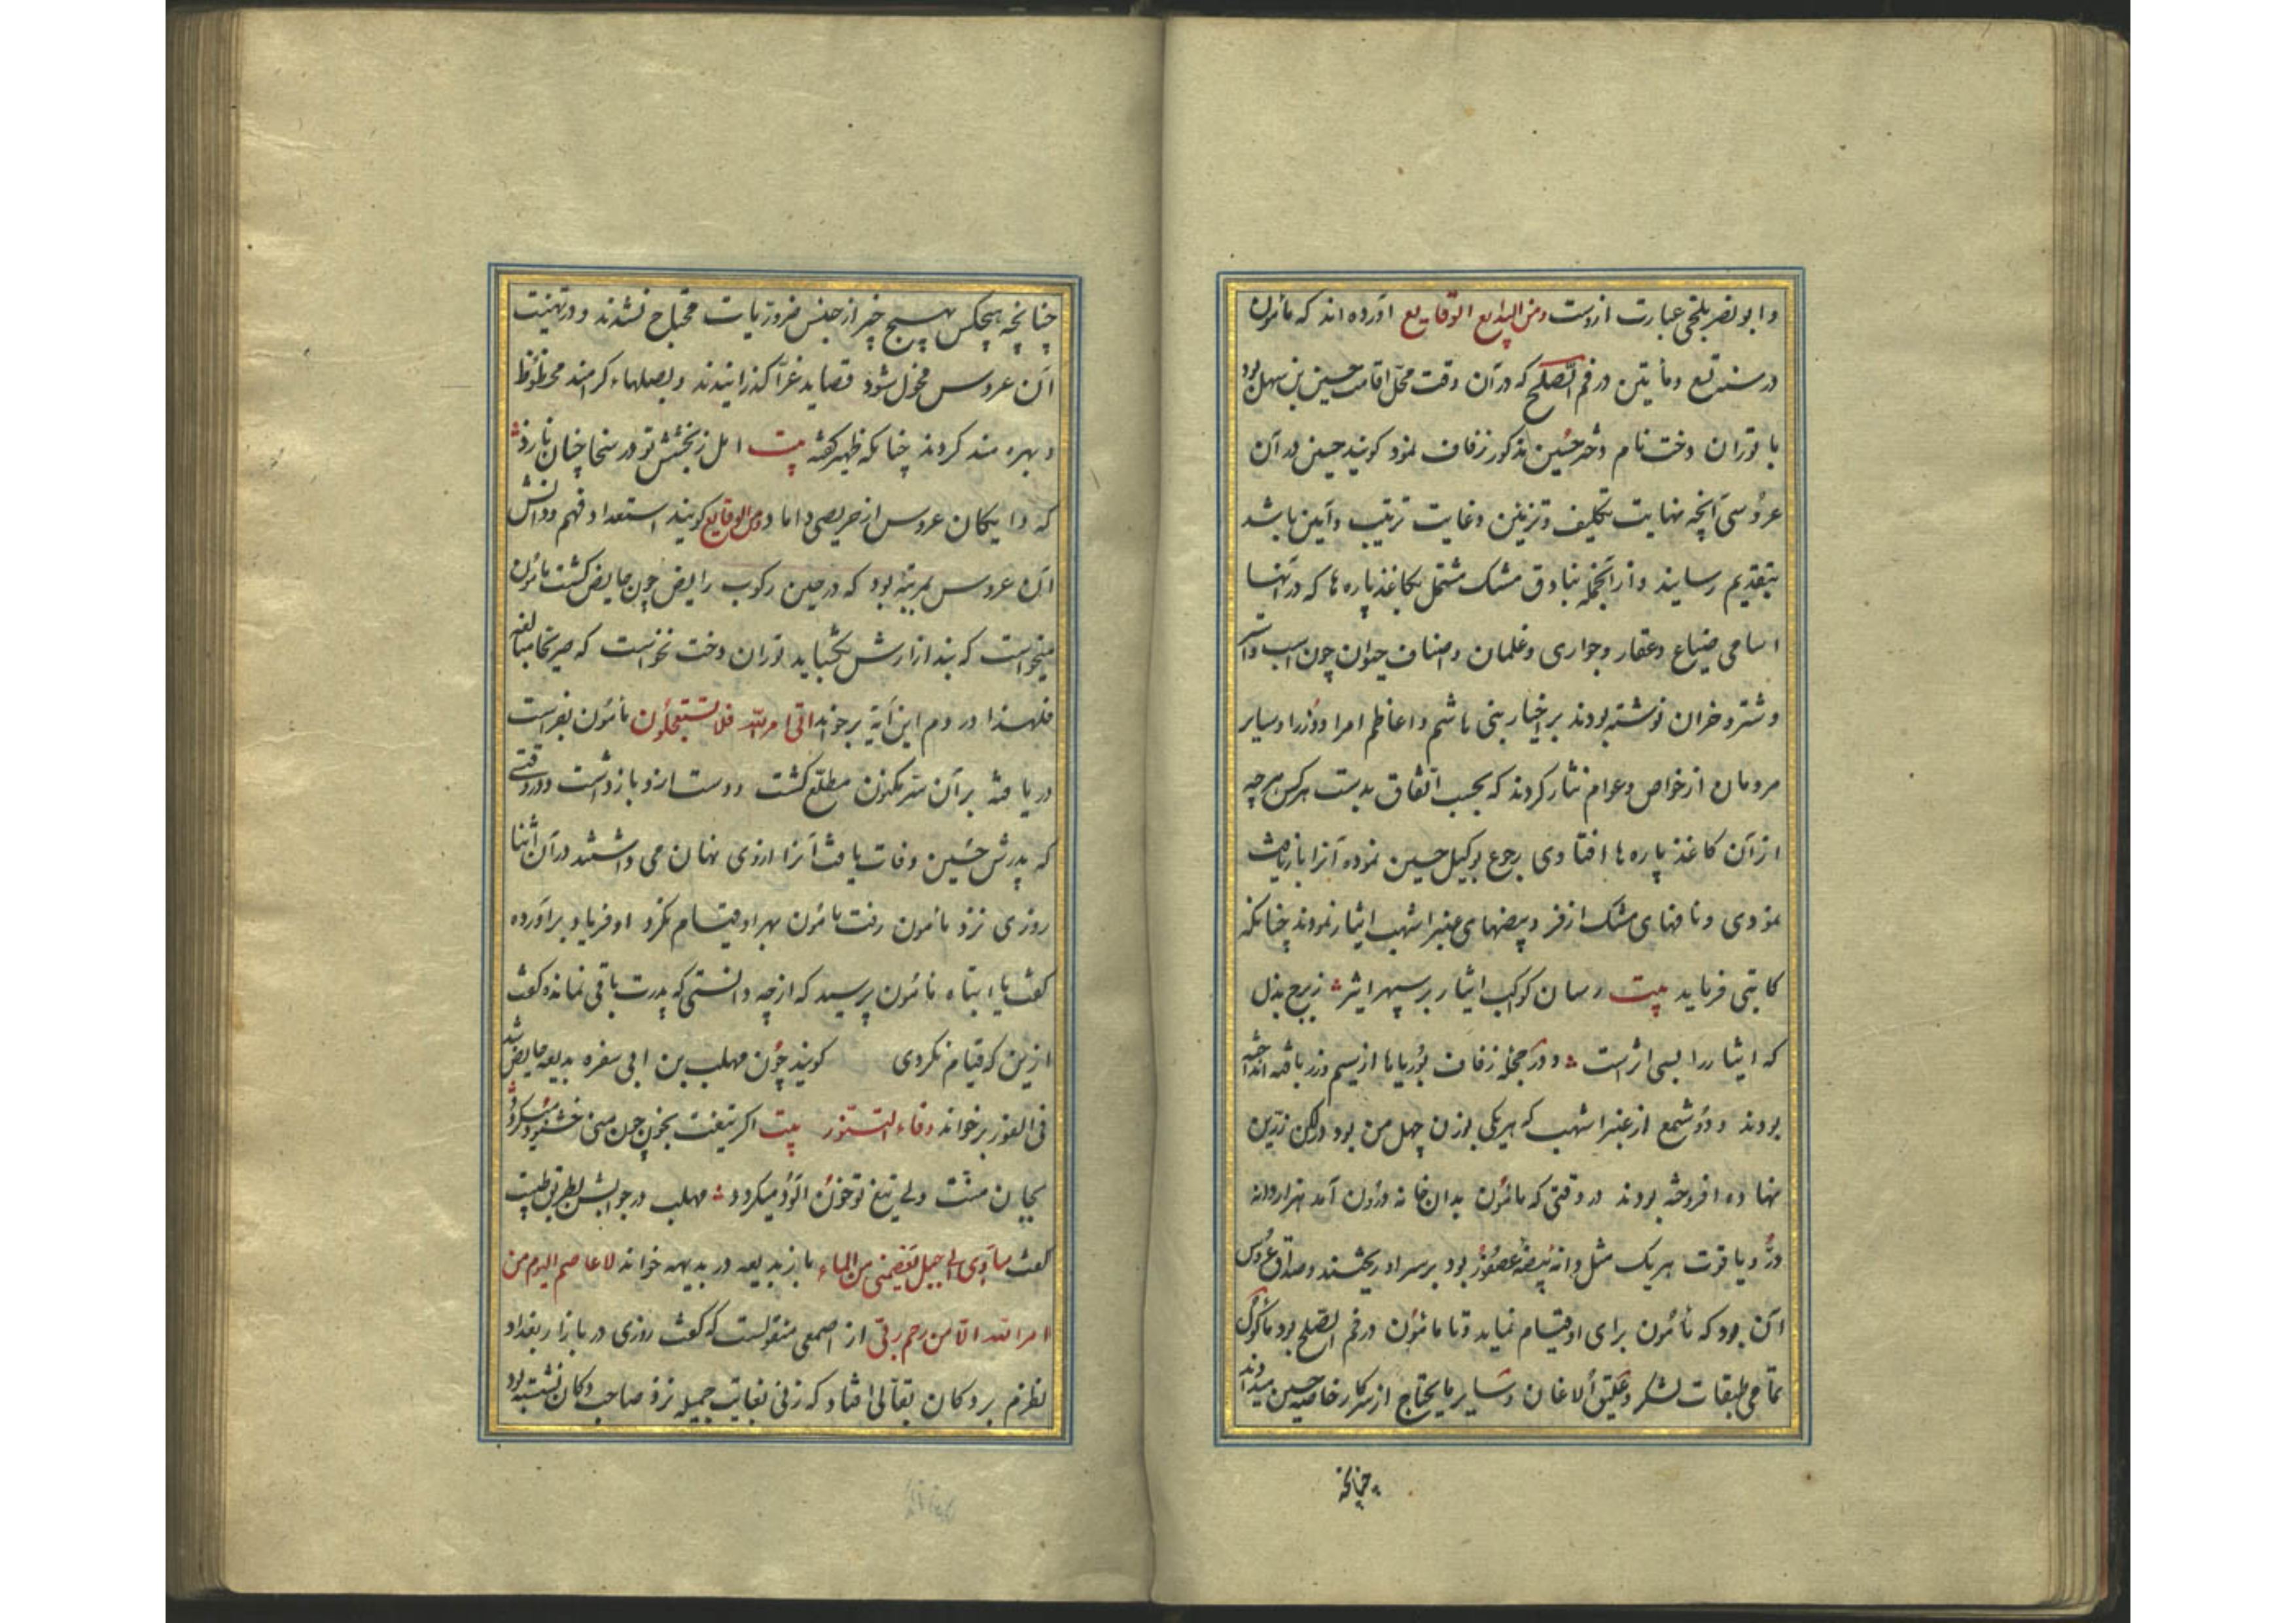 وابونصر بلخی عبارت ازوست ومن البدایع الوقایع آورده اند که مأمون
در سنه تسع ومأیتین در فم الصلح که در آن وقت محل اقامت حسین بن سهل بود
با توران دخت نام دختر حسین مذکور زفاف نمود کویند حسین در آن
عروسی آنچه نهایت تکلیف وتزیین وغایت ترتیب وآیین باشد
بتقدیم رسانید وازانجمله بنادق مشک مشتمل بکاغذ پاره ها که در آنها
اسامی ضیاع وعقار وجواری وغلمان واصناف حیوان چون اسب واستر
وشتر وخران نوشته بودند بر اخیار بنی هاشم واعاظم امرا ووزرا وسایر
مردمان از خواص وعوام نثار کردند که بحسب اتفاق بدست هرکس هرچه
از آن کاغذ پاره ها افتادی رجوع بوکیل حسین نموده آنرا بازیافت
نمودی ونافهای مشک اذفر وبیضهای عنبر اشهب ایثار نمودند چنانکه
کاتبی فرماید بیت رسان کوکب ایثار بر سپهر اثیر ز برج بذل
که ایثار را بسی اثرست ودر حجله زفاف بوریاها از سیم وزر بافته انداخته
بودند ودو شمع از عنبر اشهب که هر یکی بوزن چهل من بود در لکن زرین
نهاده افروخته بودند در وقتی که مأمون بدان خانه درون آمد هزار دانه
در ویاقوت هر یک مثل دانه بیضه عصفور بود بر سر او ریختند وصداق عروس
آن بود که مأمون برای او قیام نماید وتا مأمون در فم الصلح بود مأکول
تمامی طبقات لشکر وعلیق الاغان وسایر مایحتاج از سرکار خاصه حسین میدادند
چنانچه
چنانچه هیچکس بهیچ چیز از جنس ضروریات محتاج نشدند ودر تهنیت
آن عروس قصاید غرا کذرانیدند وبصلهاء کرامند محظوظ
وبهره مند کردند چنانکه ظهیر کفته بیت امل ز بخشش تو در سخا چنان نازد
که دایکان عروس از حریصی داماد ومن الوقایع کویند استعداد وفهم ودانش
آن عروس بمرتبه بود که در حین رکوب رایض چون حایض کشت مأمون
میخواست که بند ازارش بکشاید توران دخت نخواست که صریحا مبالغه
فلهذا در دم این آیة برخواند اتی امر الله فلا تستعجلون مأمون بفراست
دریافته بر آن سر مکنون مطلع کشت ودست ازو بازداشت ودر وقتی
که پدرش حسین وفات یافت آنرا ازوی نهان می داشتند در آن اثنا
روزی نزد مأمون رفت مأمون بهر او قیام نکرد او فریاد برآورده
کفت یا ابتاه مأمون پرسید که از چه دانستی که پدرت باقی نمانده کفت
ازین که قیام نکردی کویند چون مهلب بن ابی سفره بدیعه حایض شد
فی الفور برخواند وفاء التنور بیت اکر تیغت بخون
بجان منت ولی تیغ تو خون آلود میکردد مهلب در جوابش بطریق طیبت
کفت سآوی الی جبل یعصمنی من الماء باز بدیعه در بدیهه خواند لا عاصم الیوم من
امر الله الا من رحم ربی از اصمعی منقولست که کفت روزی در بازار بغداد
نظرم بر دکان بقالی افتاد که زنی بغایت جمیله نزد صاحب دکان نشسته بود